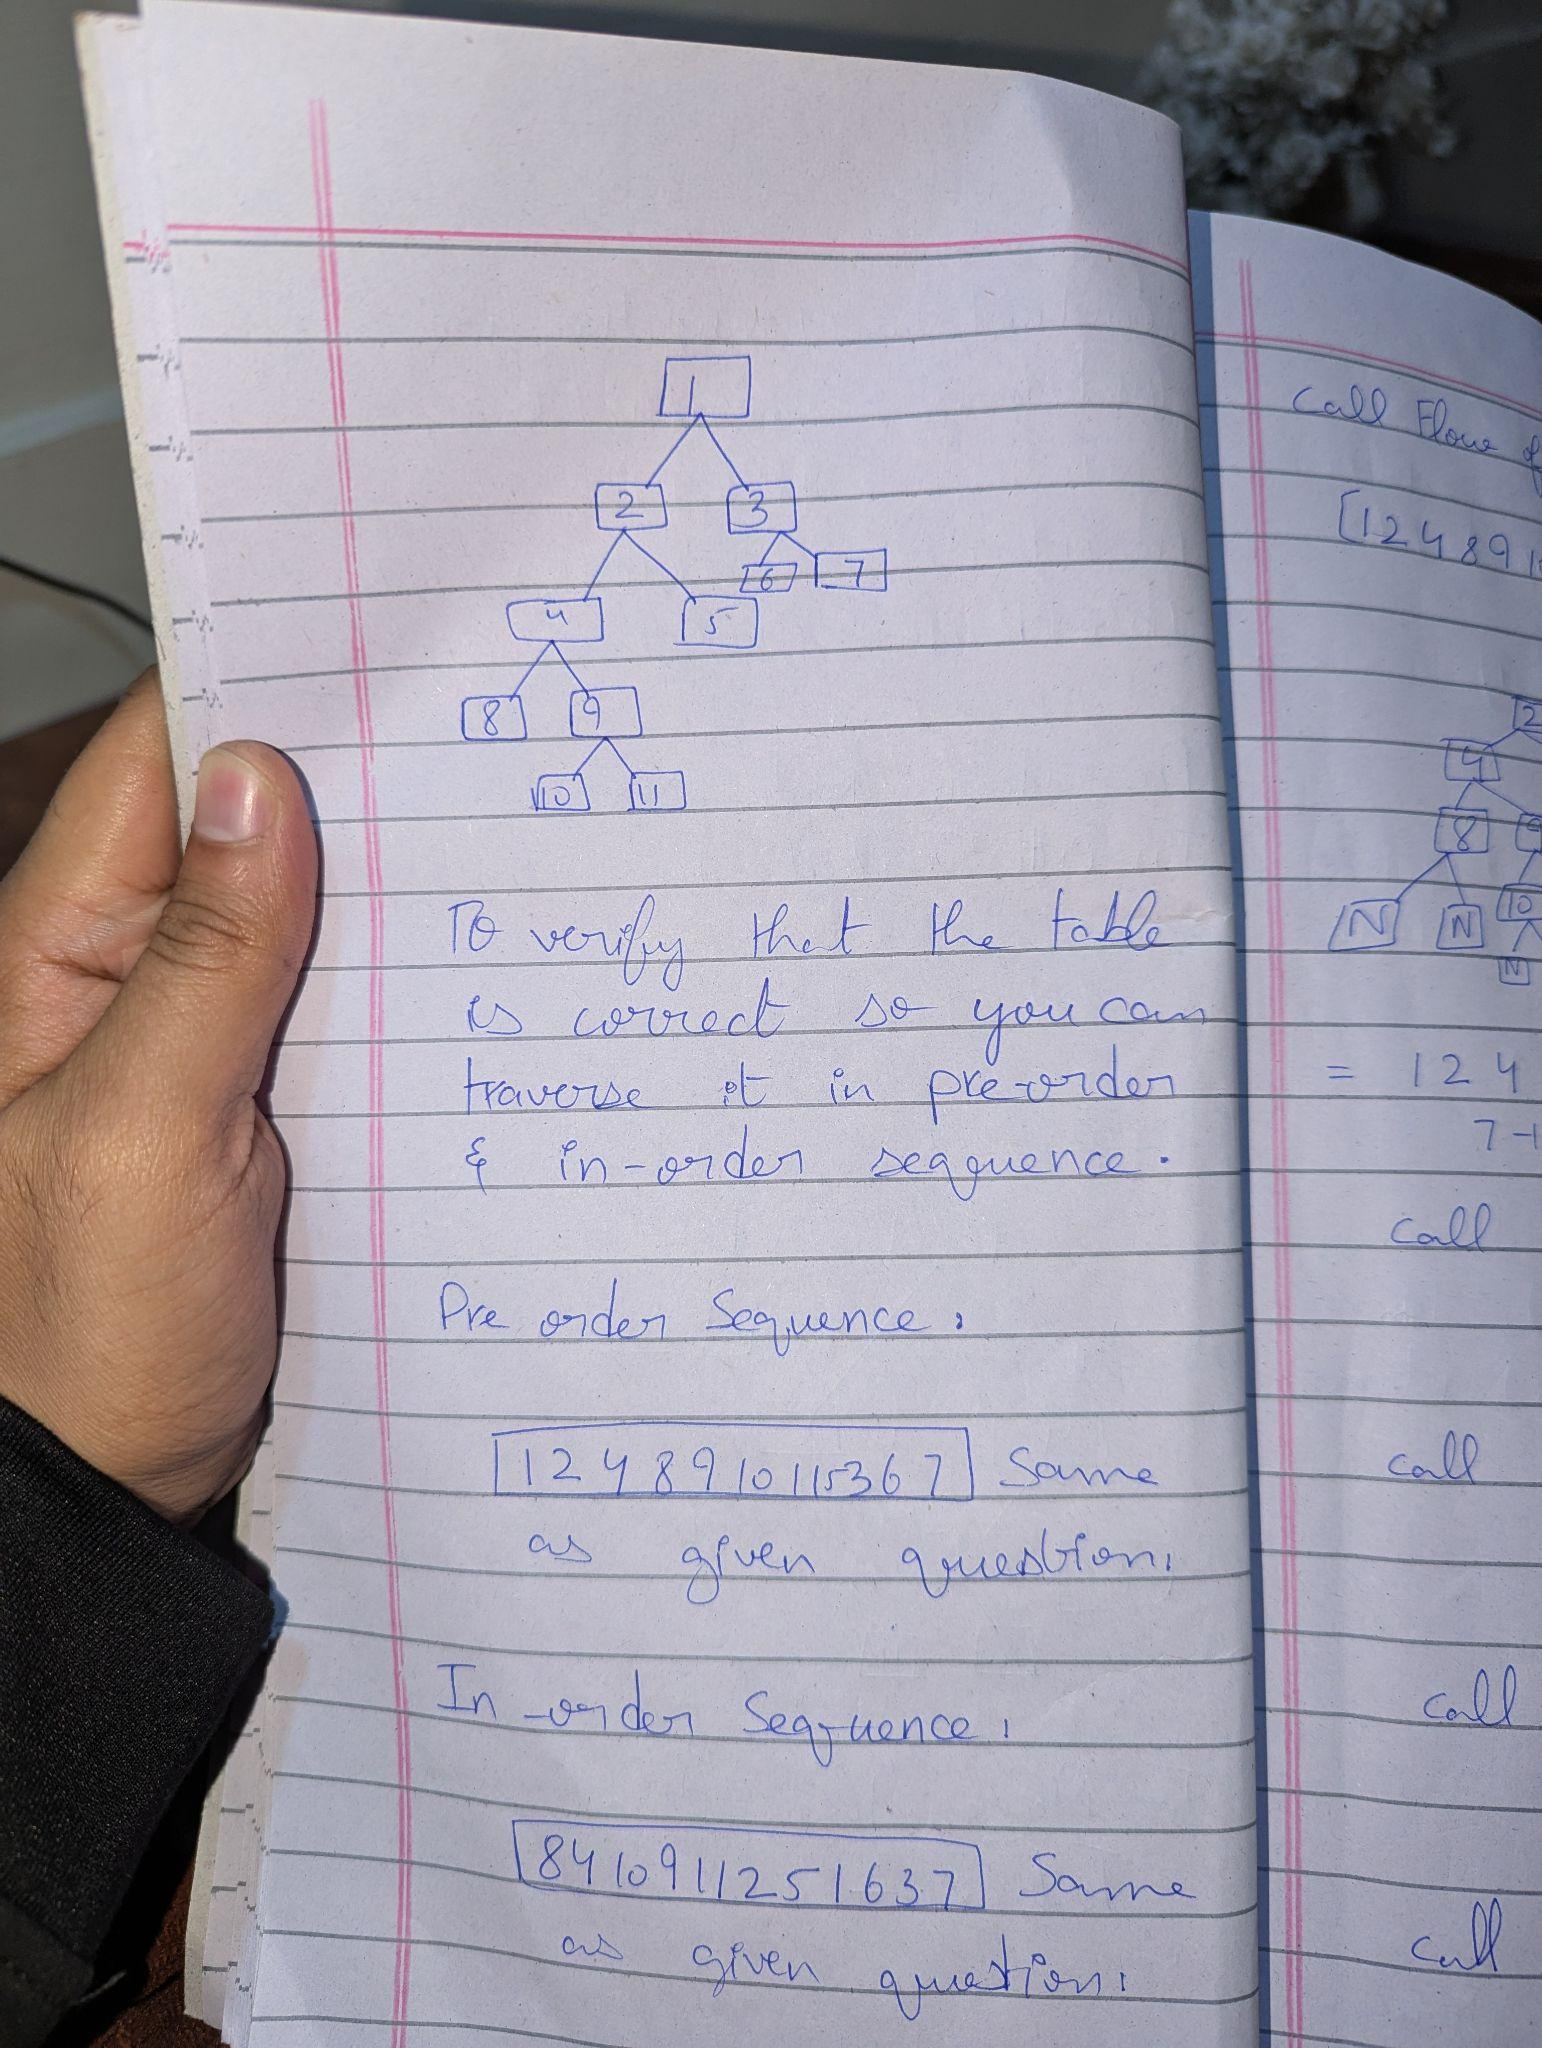 1
2 3
6 7
4 5
8 9
10 11
To verify that the table
is correct so you can
traverse it in pre-order
& in-order seqquence.
Pre order Sequence.
1 2 4 8 9 10 11 5 3 6 7 Same
as given question.
In-order Sequence.
8 4 10 9 11 2 5 1 6 3 7 Same
as given question.
Call Flow of
[1 2 4 8 9 1
2
4
8 9
N N 10
N
= 1 2 4
7 -1
call
call
call
call